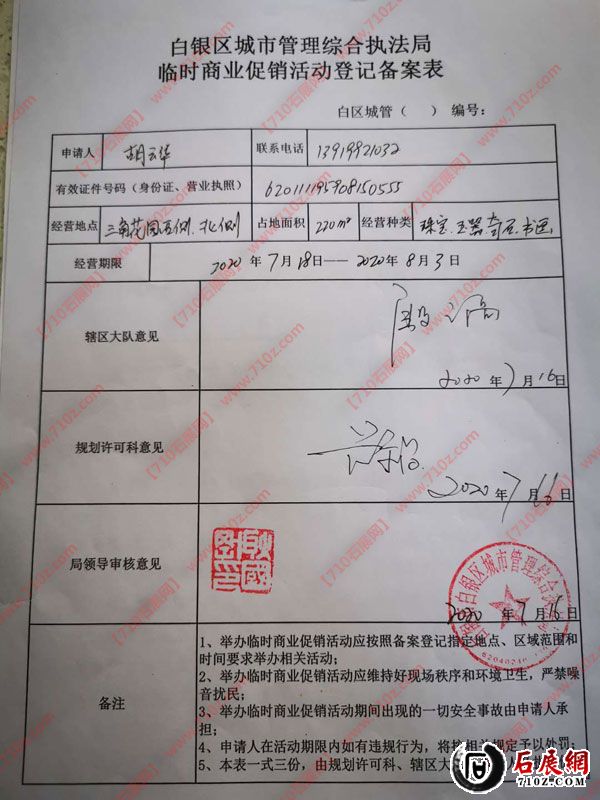 白银区城市管理综合执法局
临时商业促销活动登记备案表
白区城管（ ） 编号：
申请人 胡云华 联系电话 13919921032
有效证件号码（身份证、营业执照） 620111195908150555
经营地点 三角花园西侧.北侧 占地面积 220m² 经营种类 珠宝.玉器.奇石.书画
经营期限 2020 年 7 月 18 日—— 2020 年 8 月 3 日
辖区大队意见
2020 年 7 月 16 日
规划许可科意见
2020 年 7 月 16 日
局领导审核意见
白银区城市管理综合
2020 年 7 月 16 日
备注
1、举办临时商业促销活动应按照备案登记指定地点、区域范围和
时间要求举办相关活动；
2、举办临时商业促销活动应维持好现场秩序和环境卫生，严禁噪
音扰民；
3、举办临时商业促销活动期间出现的一切安全事故由申请人承
担；
4、申请人在活动期限内如有违规行为，将按相关规定予以处罚；
5、本表一式三份，由规划许可科、辖区大
【710石展网】www.710z.com
石展網
www.710z.com